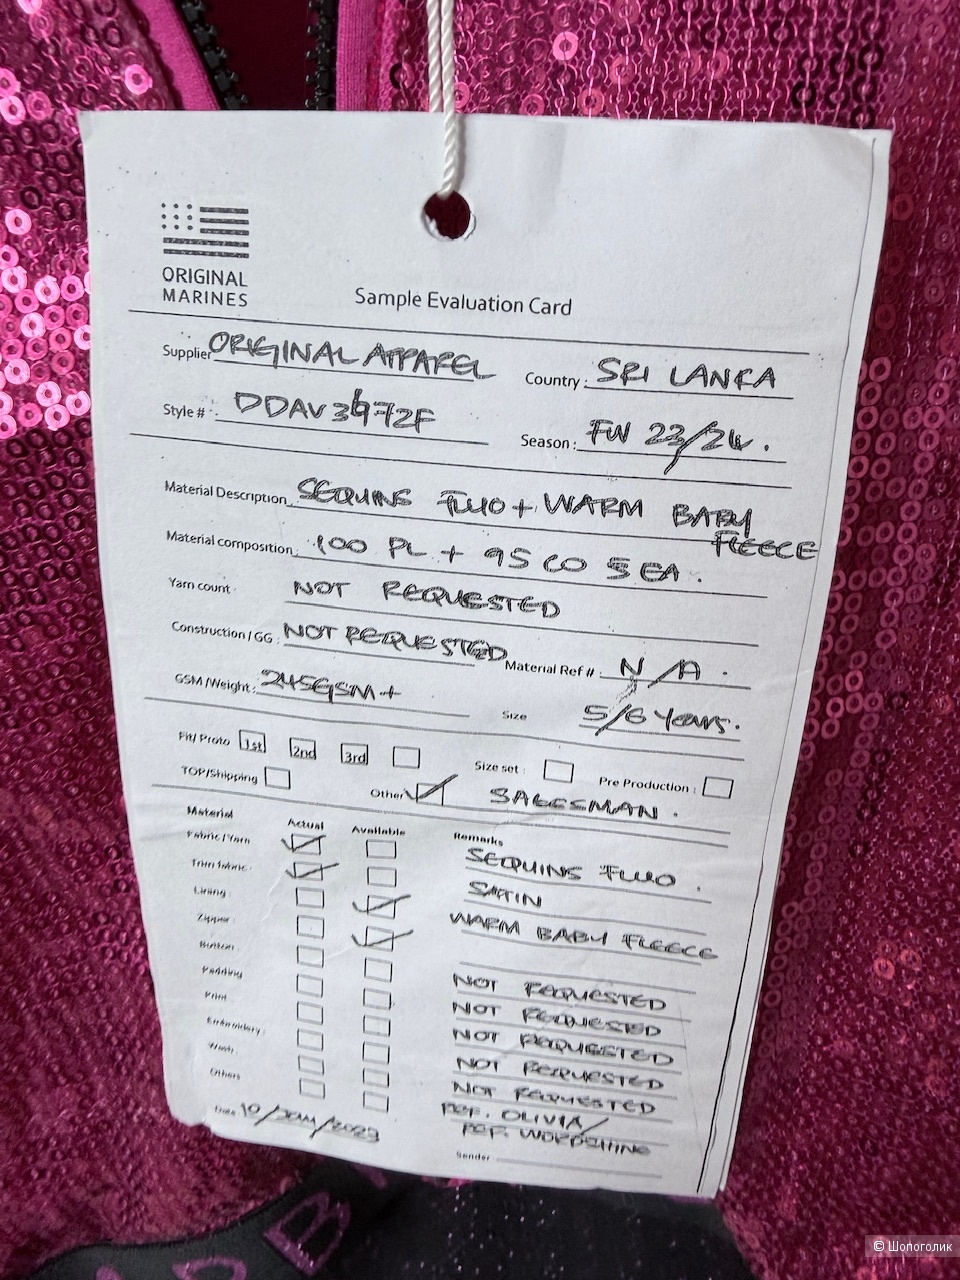 ORIGINAL
MARINES
Sample Evaluation Card
Supplier ORIGINAL APPAREL
Country : SRI LANKA
Style # : DDAV3472F
Season : FW 23/24.
Material Description SEQUINS FLUO + WARM BABY
FLEECE
Material composition : 100 PL + 95 CO 5 EA.
Yarn count NOT REQUESTED
Construction / GG : NOT REQUESTED
Material Ref # : N/A.
GSM /Weight : 245GSM+
Size 5/6 Years.
Fit/ Proto 1st 2nd 3rd
Size set : Pre Production :
TOP/Shipping Other SALESMAN.
Material Actual Available Remarks
Fabric/Yarn SEQUINS FLUO.
Trim fabric: SATIN
Lining: WARM BABY FLEECE
Zipper:
Button: NOT REQUESTED
Padding NOT REQUESTED
Print NOT REQUESTED
Embroidery: NOT REQUESTED
Wash: NOT REQUESTED
Others REF. OLIVIA/
REF.
Date 10/JAN/2023
Sender
© Шопоголик